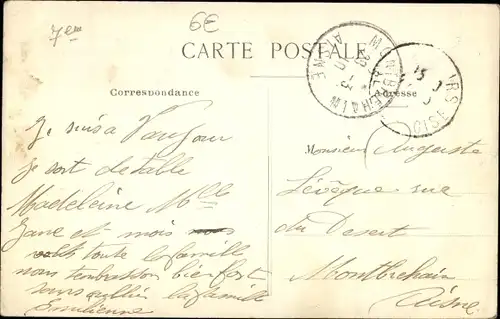 7em
6E
CARTE POSTALE
MONTBREHAIN
AISNE
OISE
Correspondance
Adresse
Je suis a
je sort de table
Madeleine Mlle
Jane et mois
toute la famille
nous bien fort
la famille
Emilienne
Monsieur Auguste
Lévêque rue
du Desert
Montbrehain
Aisne